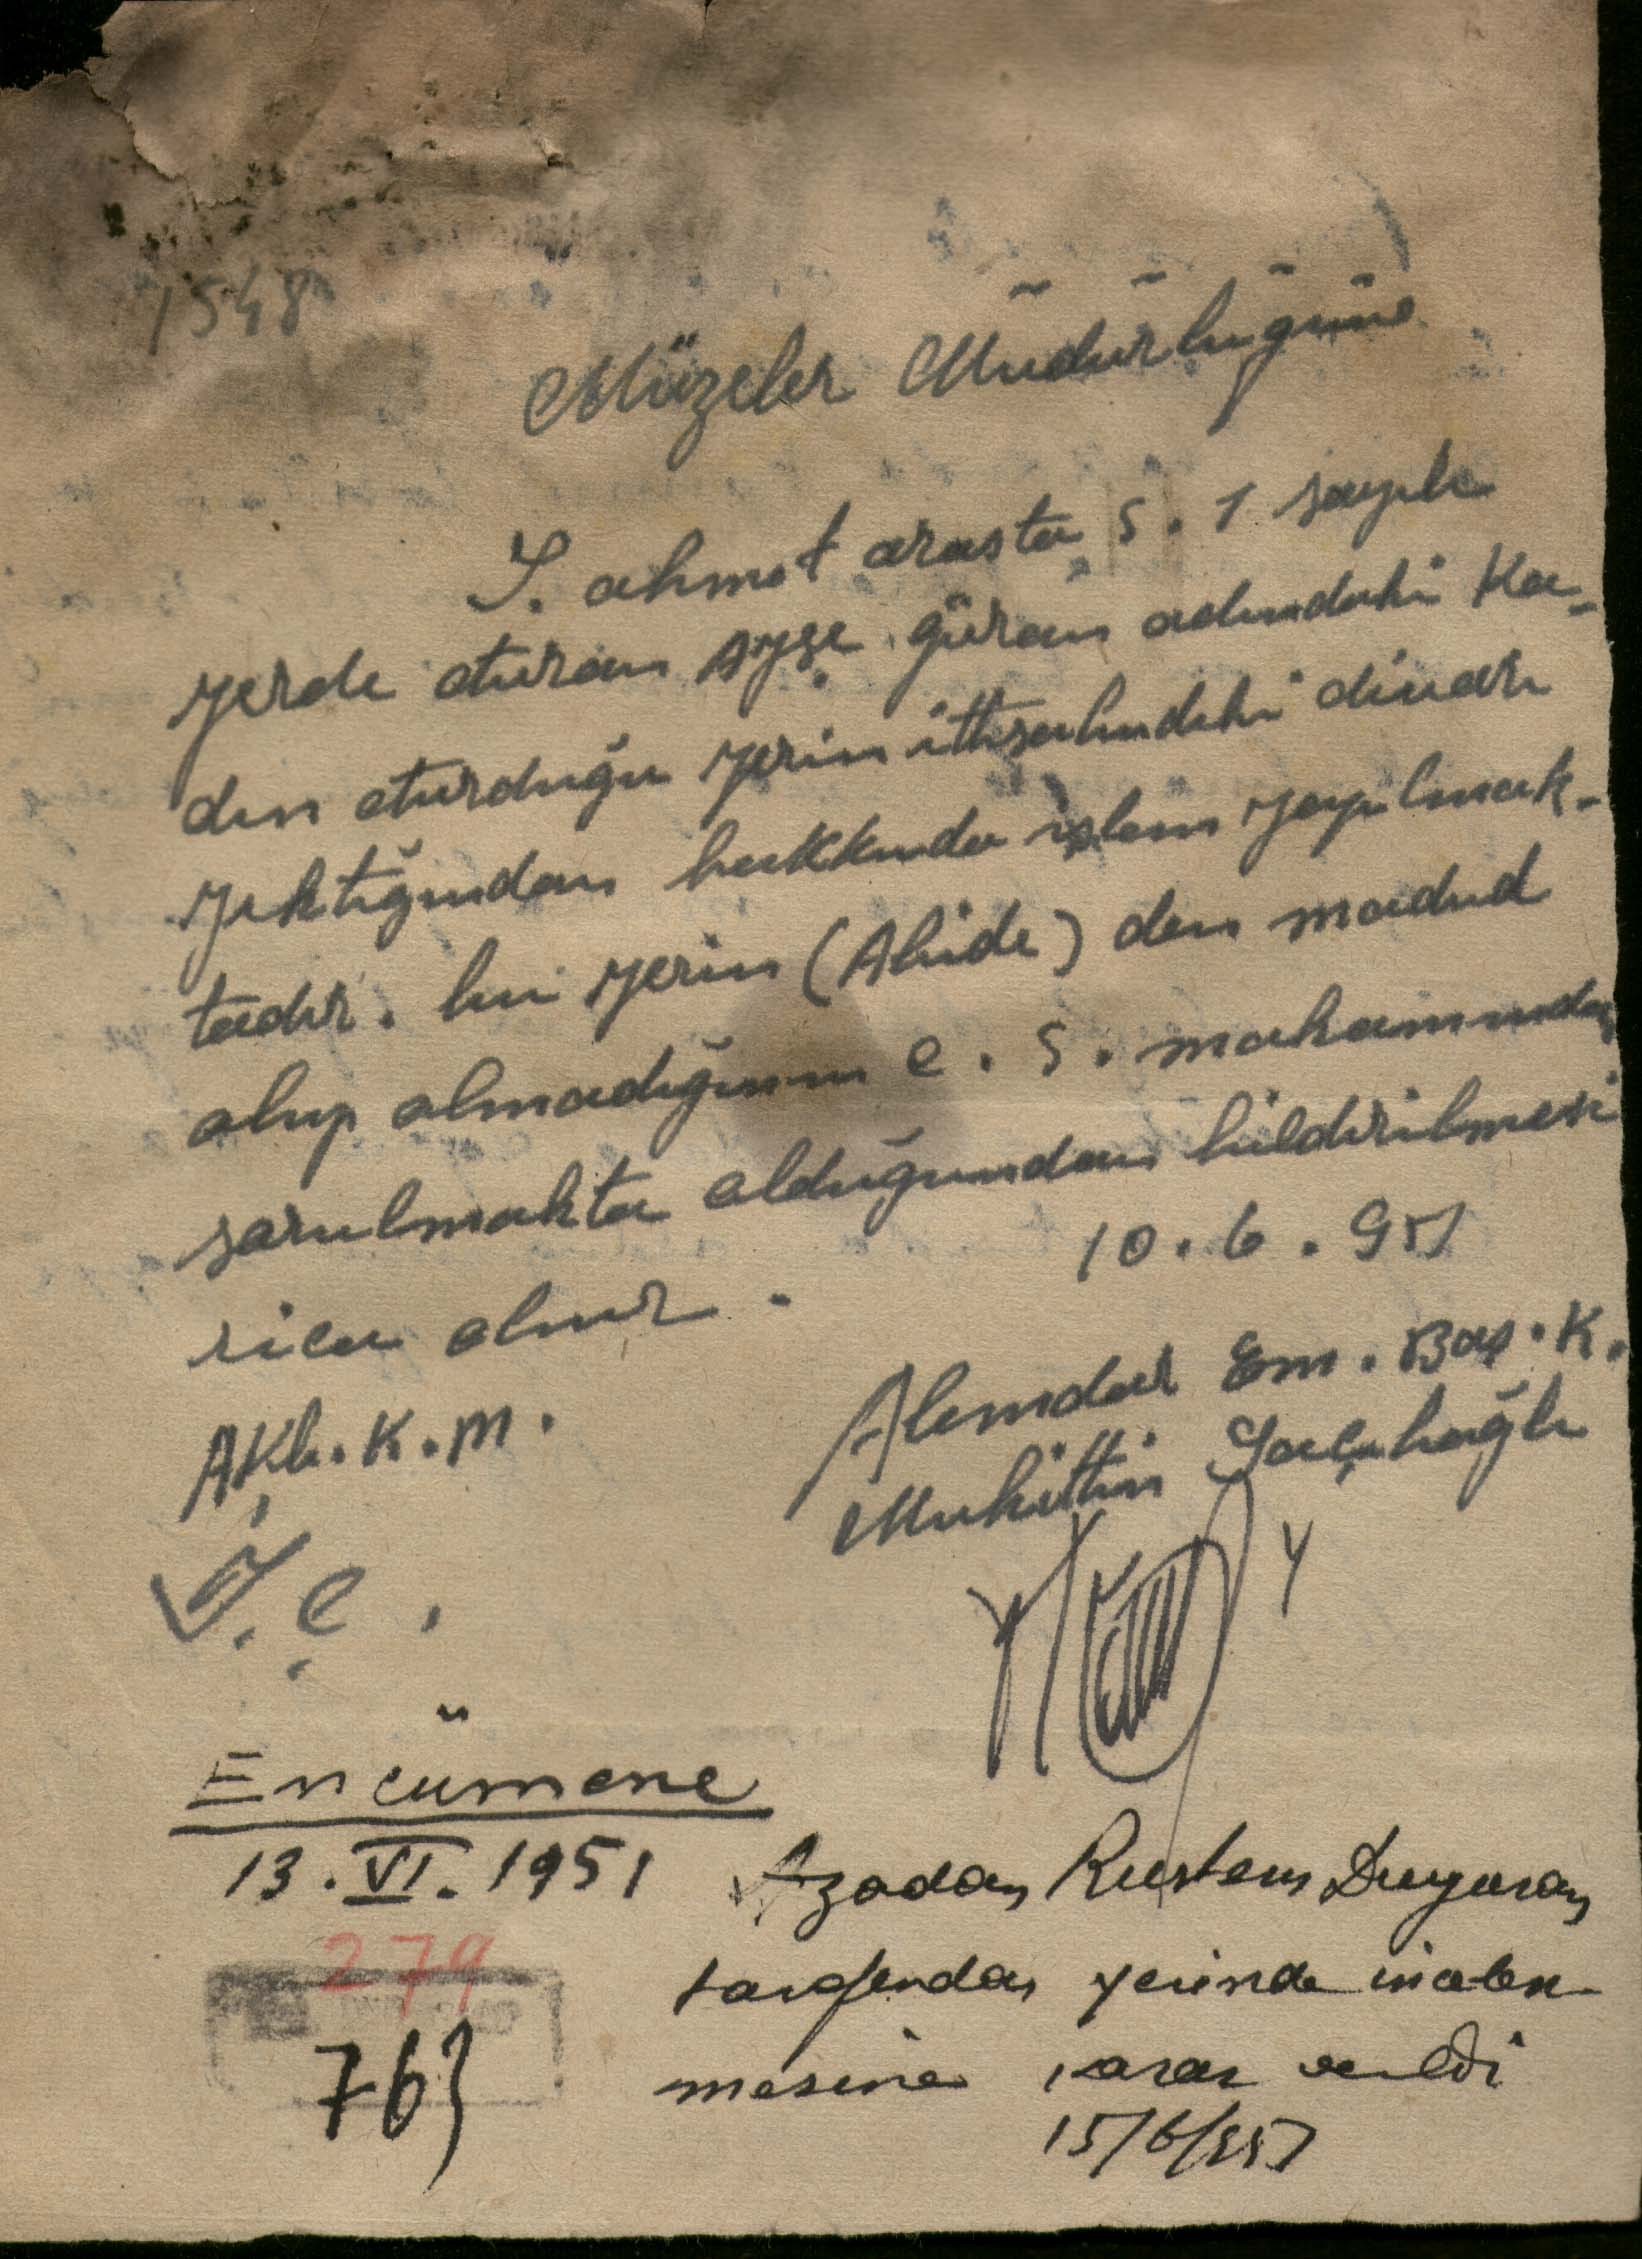 1548
Müzeler Müdürlüğüne
S. ahmet arasta S. 1 sayılı
yerde oturan Ayşe güran adındaki Ka-
dın oturduğu yerin ittisalındaki dıvarı
yıktığından hakkında işlem yapılmak-
tadır. bu yerin (Abide) den madud
olup olmadığının C. S. makamından
sorulmakta olduğundan bildirilmesi
rica olunur.
10.6.951
Alemdar Em. Baş. K.
Muhittin
AKb. K. M.
Encümene
13.VI.1951
Azadan Rüstem Duyuran
tarafından yerinde incelen-
mesine karar verildi
15/6/951
279
763